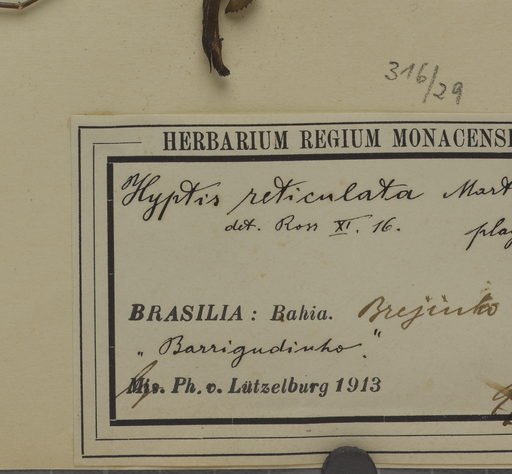 316/29
HERBARIUM REGIUM MONACENS
Hyptis reticulata Mart
det. Ross XI. 16.
BRASILIA : Bahia. Brejinho
„Barrigudinho."
Mis. Ph. v. Lützelburg 1913